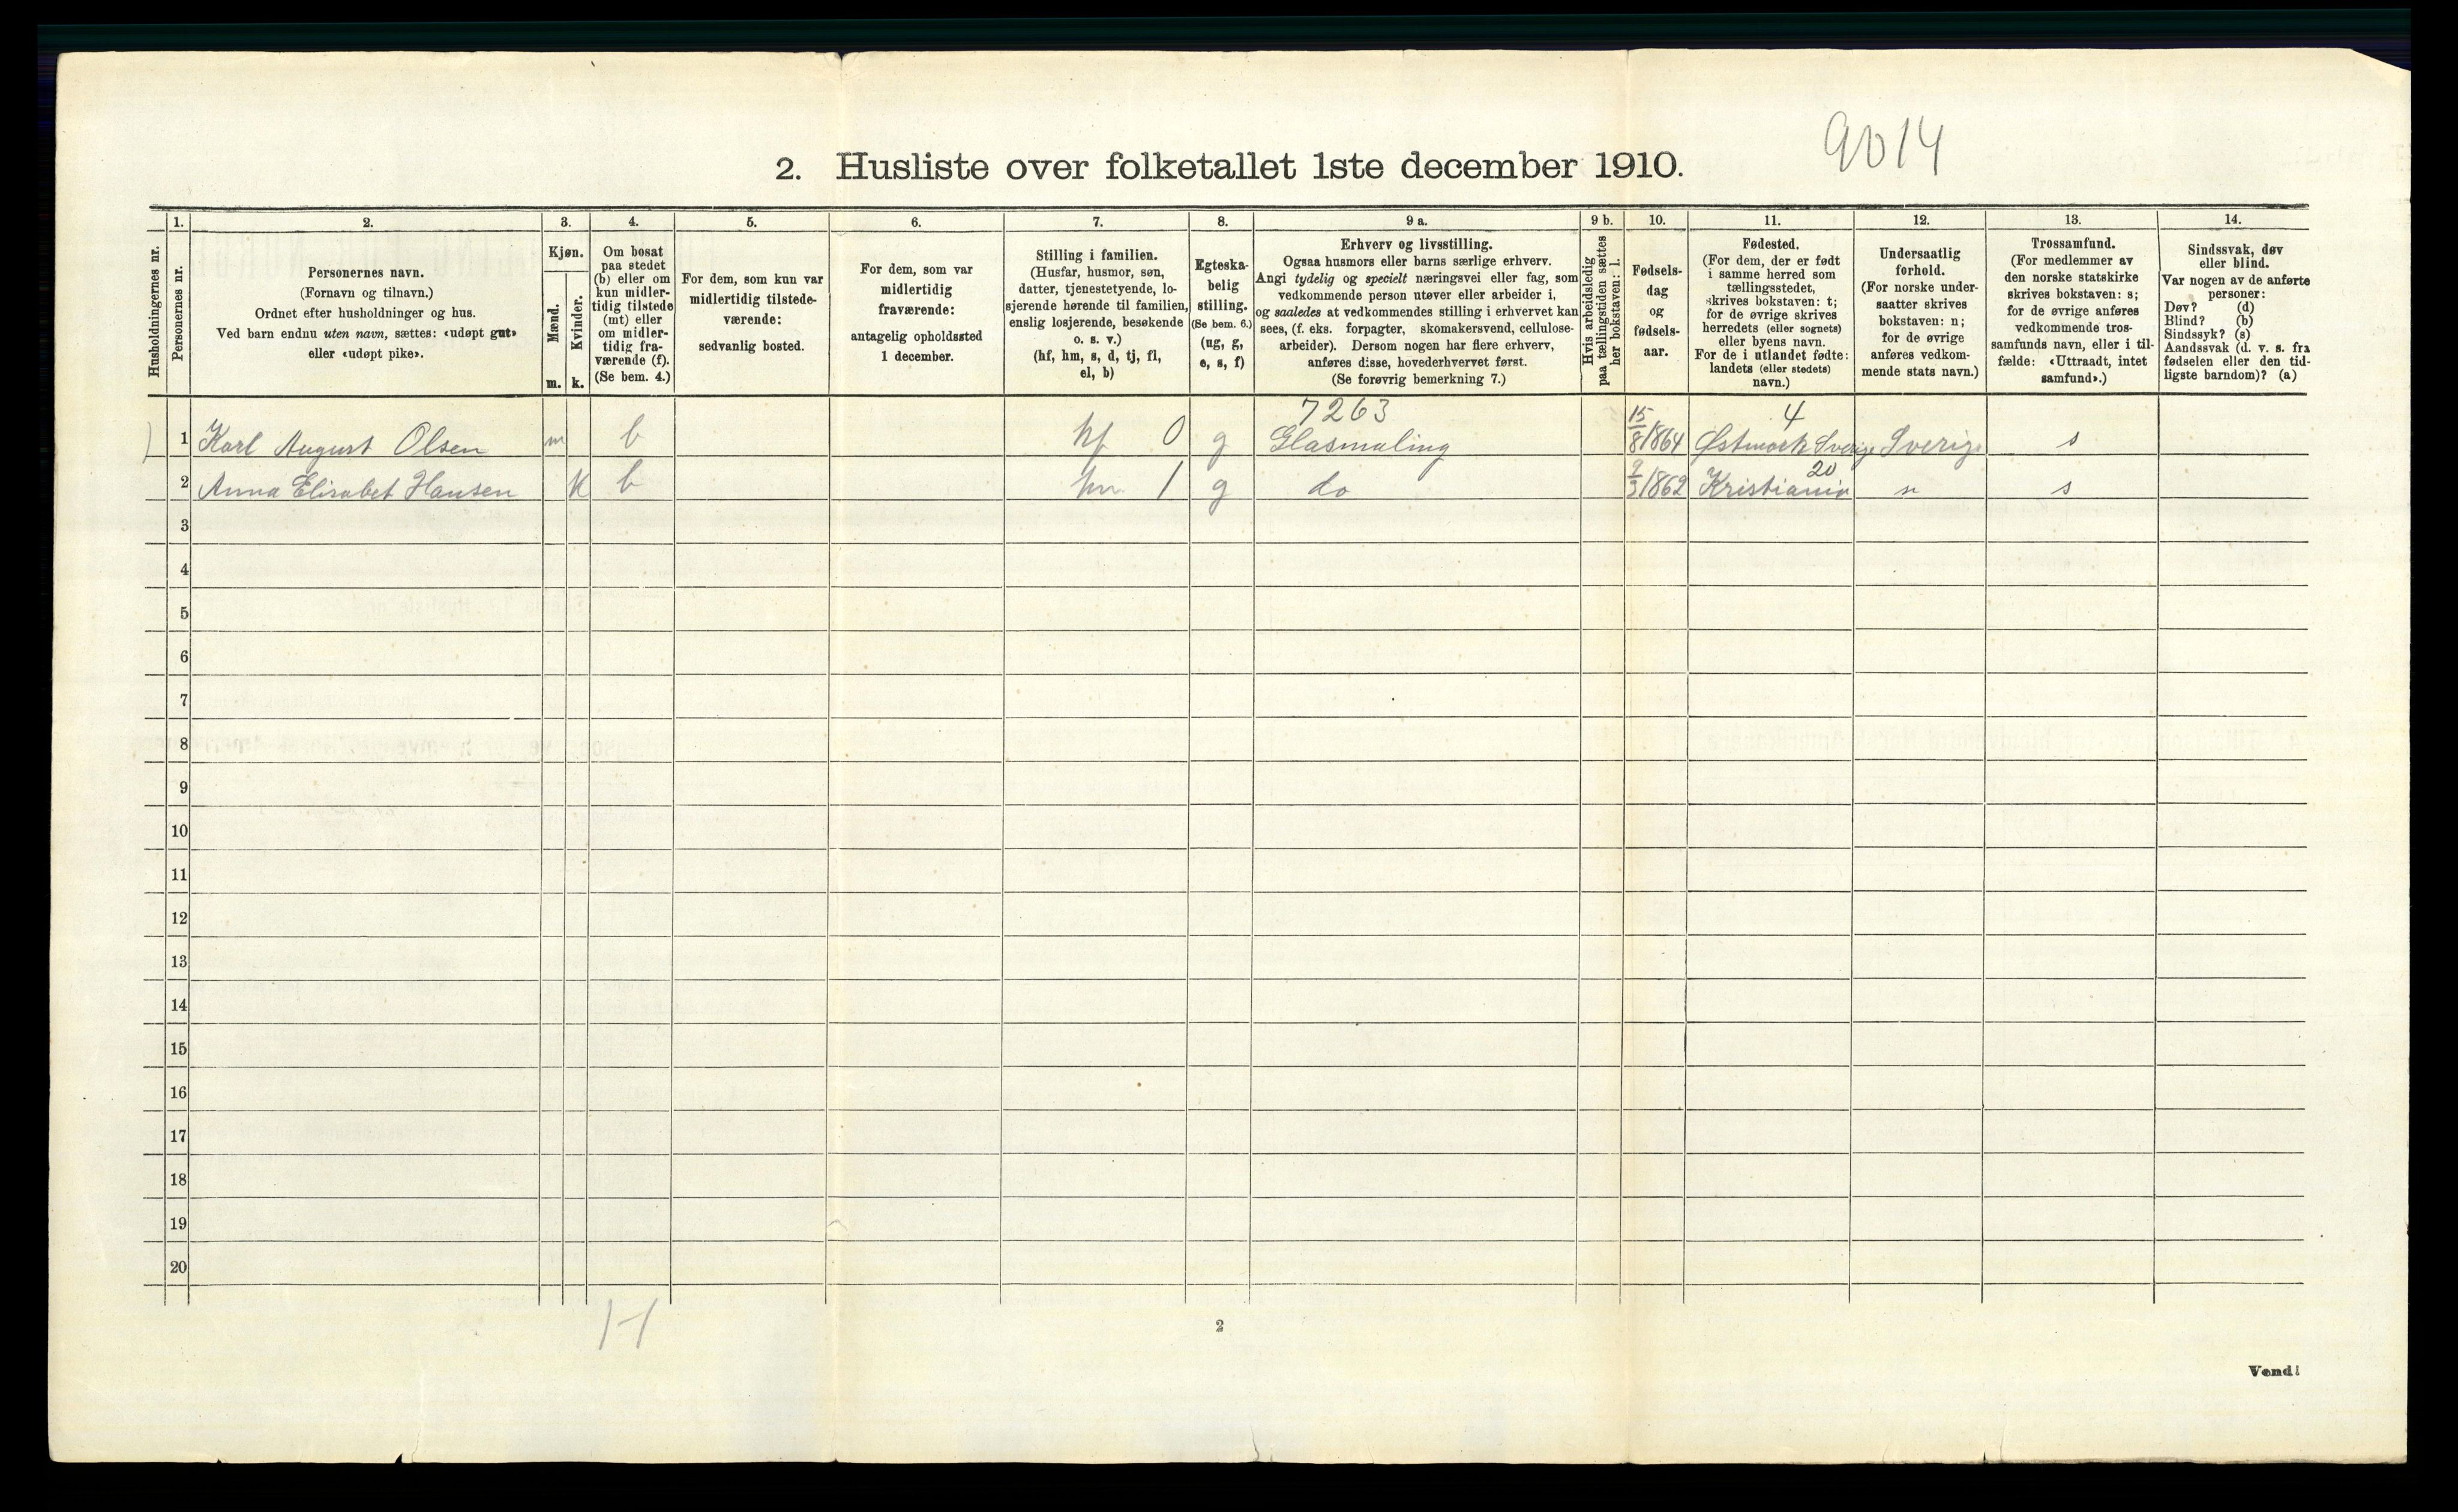 9014
2. Husliste over folketallet 1ste december 1910.
Husholdningernes nr.
1.
Personernes nr.
2.
Personernes navn.
(Fornavn og tilnavn.)
Ordnet efter husholdninger og hus.
Ved barn endnu uten navn, sættes: «udøpt gut»
eller «udøpt pike».
3.
Kjøn.
Mænd.
Kvinder.
m. k.
4.
Om bosat
paa stedet
(b) eller om
kun midler-
tidig tilstede
(mt) eller
om midler-
tidig fra-
værende (f).
(Se bem. 4.)
5.
For dem, som kun var
midlertidig tilstede-
værende:
sedvanlig bosted.
6.
For dem, som var
midlertidig
fraværende:
antagelig opholdssted
1 december.
7.
Stilling i familien.
(Husfar, husmor, søn,
datter, tjenestetyende, lo-
sjerende hørende til familien,
enslig losjerende, besøkende
o. s. v.)
(hf, hm, s, d, tj, fl,
el, b)
8.
Egteska-
belig
stilling.
(Se bem. 6.)
(ug, g,
e, s, f)
9 a.
Erhverv og livsstilling.
Ogsaa husmors eller barns særlige erhverv.
Angi tydelig og specielt næringsvei eller fag, som
vedkommende person utøver eller arbeider i,
og saaledes at vedkommendes stilling i erhvervet kan
sees, (f. eks. forpagter, skomakersvend, cellulose-
arbeider). Dersom nogen har flere erhverv,
anføres disse, hovederhvervet først.
(Se forøvrig bemerkning 7.)
9 b.
Hvis arbeidsledig
paa tællingstiden sættes
her bokstaven: l.
10.
Fødsels-
dag
og
fødsels-
aar.
11.
Fødested.
(For dem, der er født
i samme herred som
tællingsstedet,
skrives bokstaven: t;
for de øvrige skrives
herredets (eller sognets)
eller byens navn.
For de i utlandet fødte:
landets (eller stedets)
navn.)
12.
Undersaatlig
forhold.
(For norske under-
saatter skrives
bokstaven: n;
for de øvrige
anføres vedkom-
mende stats navn.)
13.
Trossamfund.
(For medlemmer av
den norske statskirke
skrives bokstaven: s;
for de øvrige anføres
vedkommende tros-
samfunds navn, eller i til-
fælde: «Uttraadt, intet
samfund».)
14.
Sindssvak, døv
eller blind.
Var nogen av de anførte
personer:
Døv? (d)
Blind? (b)
Sindssyk? (s)
Aandssvak (d. v. s. fra
fødselen eller den tid-
ligste barndom)? (a)
7263 4
1 Karl August Olsen m b hf 0 g Glasmaling 15/8 1864 Østmark Sverige Sverige s
20
2 Anna Elisabet Hansen k b hm 1 g do 9/3 1862 Kristiania n s
3
4
5
6
7
8
9
10
11
12
13
14
15
16
17
18
19
20
1-1
2
Vend!